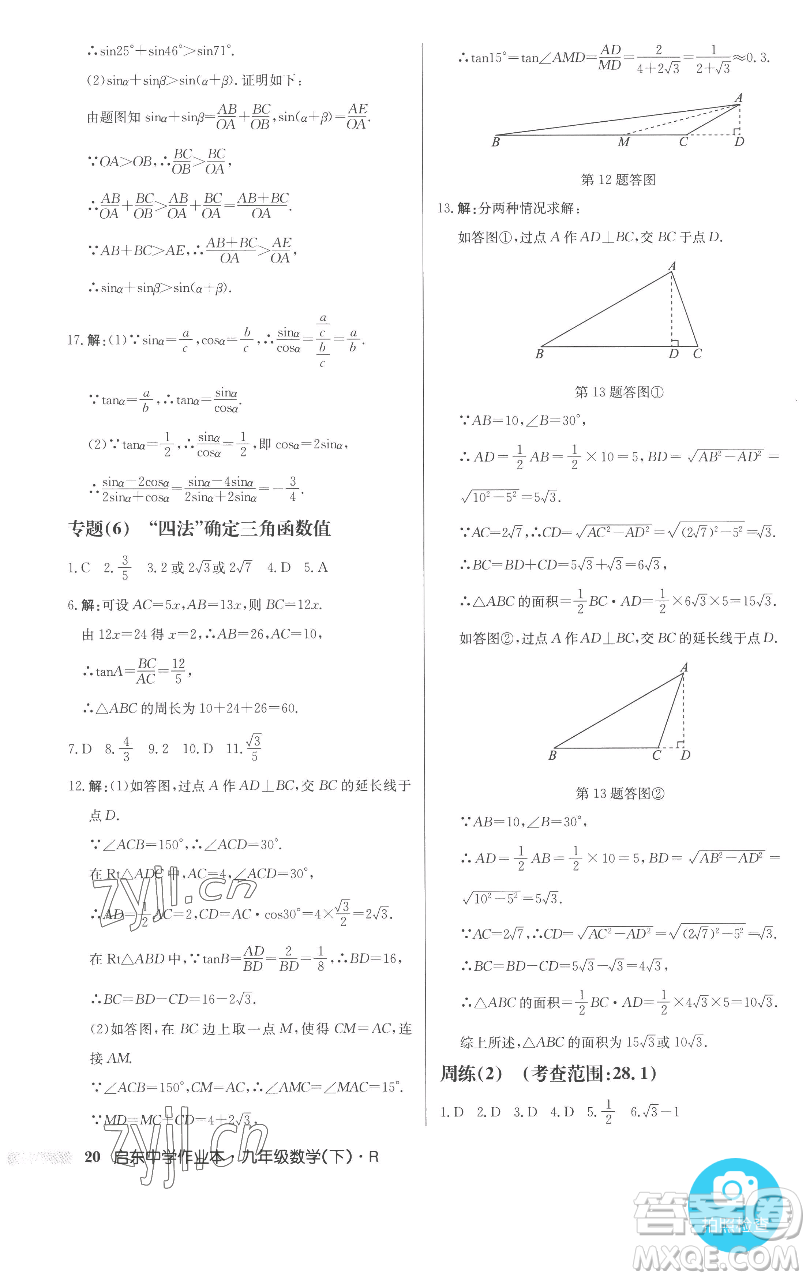 ∴sin25°+sin46°>sin71°.
(2)sinα+sinβ>sin(α+β).证明如下:
由题图知 sinα+sinβ=AB/OA+BC/OB,sin(α+β)=AE/OA.
∵OA>OB,∴BC/OB>BC/OA,
∴AB/OA+BC/OB>AB/OA+BC/OA.
∵AB+BC>AE,∴(AB+BC)/OA>AE/OA,
∴sinα+sinβ>sin(α+β).
17.解:(1)∵sinα=a/c,cosα=b/c,∴sinα/cosα=(a/c)/(b/c)=a/b.
∵tanα=a/b,∴tanα=sinα/cosα.
(2)∵tanα=1/2,∴sinα/cosα=1/2,即 cosα=2sinα,
∴(sinα-2cosα)/(2sinα+cosα)=(sinα-4sinα)/(2sinα+2sinα)=-3/4.
专题(6) “四法”确定三角函数值
1.C 2.3/5 3.2 或 2√3或 2√7 4.D 5.A
6.解:可设 AC=5x,AB=13x,则 BC=12x.
由 12x=24 得 x=2,∴AB=26,AC=10,
∴tanA=BC/AC=12/5,
∴△ABC 的周长为 10+24+26=60.
7.D 8.4/3 9.2 10.D 11.√3/5
12.解:(1)如答图,过点 A 作 AD⊥BC,交 BC 的延长线于
点 D.
∵∠ACB=150°,∴∠ACD=30°.
在 Rt△ADC 中,AC=4,∠ACD=30°,
∴AD=1/2AC=2,CD=AC·cos30°=4×√3/2=2√3.
在 Rt△ABD 中,∵tanB=AD/BD=2/BD=1/8,∴BD=16,
∴BC=BD-CD=16-2√3.
(2)如答图,在 BC 边上取一点 M,使得 CM=AC,连
接 AM.
∵∠ACB=150°,∴∠AMC=∠MAC=15°.
∵MD=MC+CD=4+2√3,
20 启东中学作业本·九年级数学(下)·R
∴tan15°=tan∠AMD=AD/MD=2/(4+2√3)=1/(2+√3)≈0.3.
A
B M C D
第 12 题答图
13.解:分两种情况求解:
如答图①,过点 A 作 AD⊥BC,交 BC 于点 D.
A
B D C
第 13 题答图①
∵AB=10,∠B=30°,
∴AD=1/2AB=1/2×10=5,BD=√(AB²-AD²)=
√(10²-5²)=5√3.
∵AC=2√7,∴CD=√(AC²-AD²)=√((2√7)²-5²)=√3,
∴BC=BD+CD=5√3+√3=6√3,
∴△ABC 的面积=1/2BC·AD=1/2×6√3×5=15√3.
如答图②,过点 A 作 AD⊥BC,交 BC 的延长线于点 D.
A
B C D
第 13 题答图②
∵AB=10,∠B=30°,
∴AD=1/2AB=1/2×10=5,BD=√(AB²-AD²)=
√(10²-5²)=5√3.
∵AC=2√7,∴CD=√(AC²-AD²)=√((2√7)²-5²)=√3,
∴BC=BD-CD=5√3-√3=4√3,
∴△ABC 的面积=1/2BC·AD=1/2×4√3×5=10√3.
综上所述,△ABC 的面积为 15√3或 10√3.
周练(2) (考查范围:28.1)
1.D 2.D 3.D 4.D 5.1/2 6.√3-1
zyjl.cn
zyjl.cn
答案卷
拍照检查
MXQE.COM